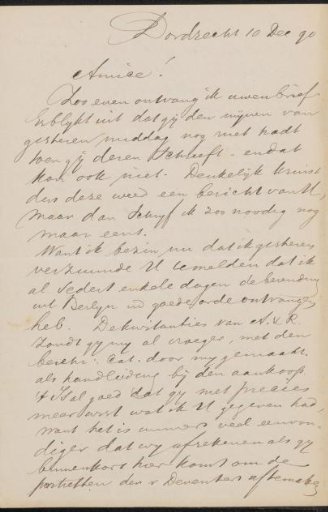 Dordrecht 10 Dec 90
Amice!
Zoo even ontvang ik uwen brief
Er blykt uit dat gij den mijnen van
gisteren middag nog niet hadt
toen gij dezen schreeft. en dat
kon ook niet. Denkelijk kruist
dus deze weer een bericht van U,
maar dan schryf ik zoo noodig nog
maar eens.
Want ik bezin nu dat ik gisteren
verzuimde U te melden dat ik
al sedert enkele dagen de bezending
uit Berlyn in goede orde ontvangen
heb. De kwitanties van A. v. R.
zondt gy my al vroeger, met den
Cat. door my gemaakt
als handleiding bij den aankoop
't Is goed dat gy niet precies
meer wist wat ik U gegeven had,
want het is immers veel eenvou-
diger dat wy afrekenen als gy
binnenkort hier komt om de
portretten der v Deventers af te maken